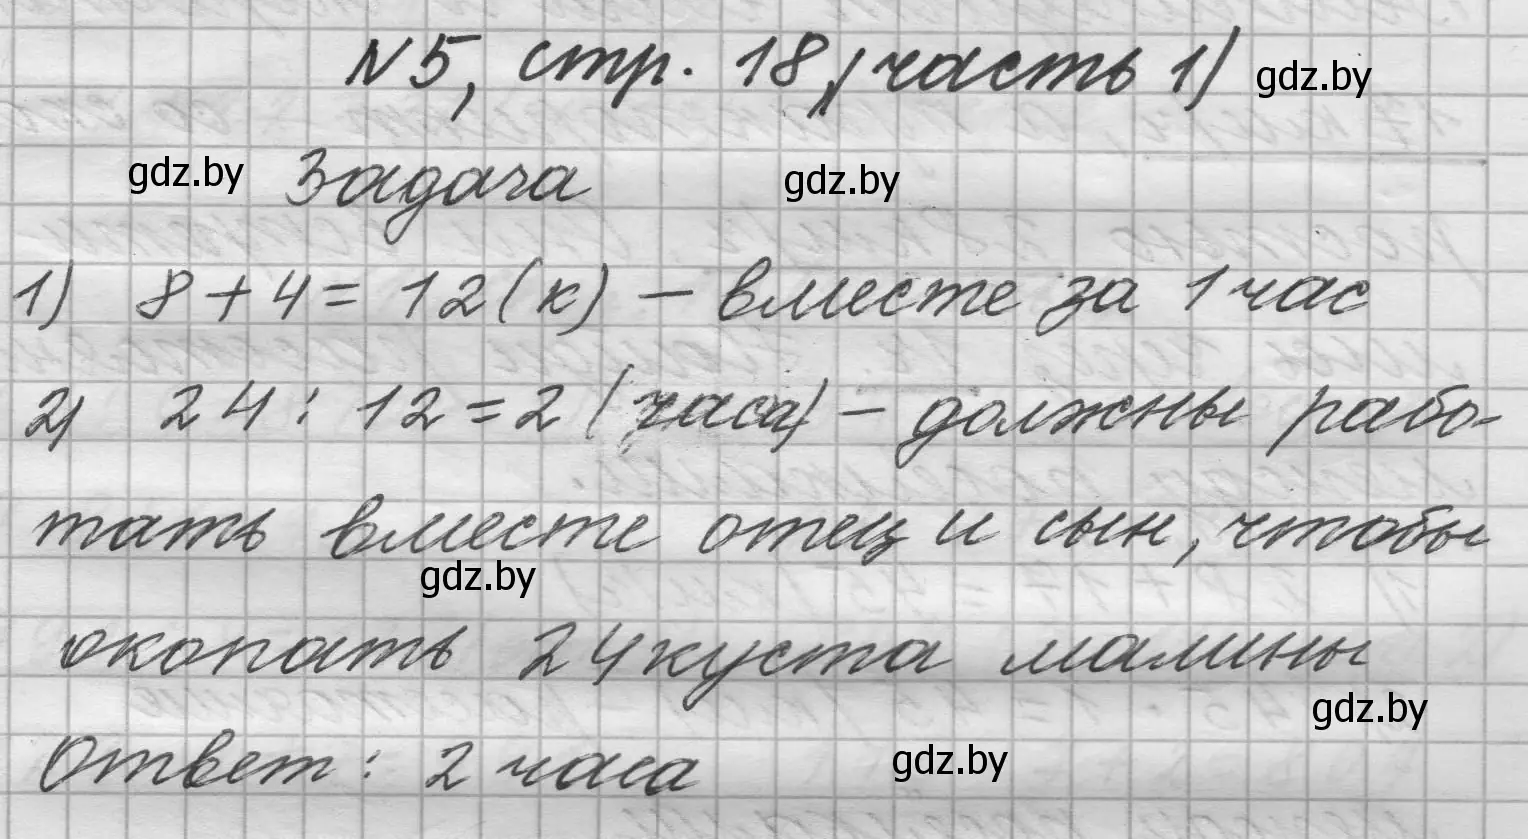 N5, стр. 18, (часть 1) gdz.by
gdz.by Задача gdz.by
1) 8 + 4 = 12 (к) – вместе за 1 час
2) 24 : 12 = 2 (часа) – должны рабо-
тать вместе отец и сын, чтобы
gdz.by
окопать 24 куста малины
gdz.by
Ответ: 2 часа gdz.by